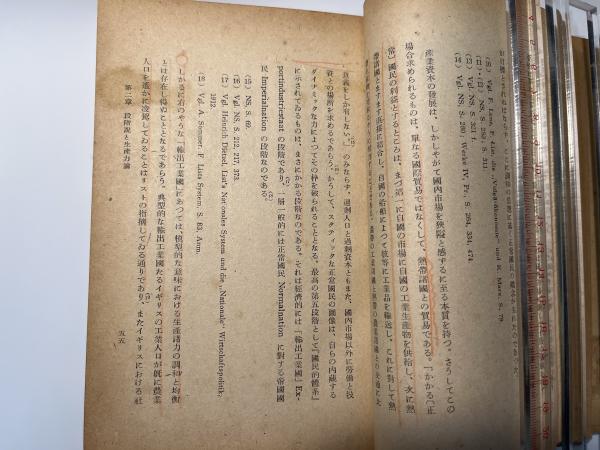 (9) Vgl. F. Lenz, F. List, die „Vulgär-ökonomie" und K. Marx. S. 79.
(11) Vgl. NS. S. 282.
(13) Vgl. NS. S. 311
(14) Vgl. NS. S. 290; Werke IV, Fr. S. 264, 334, 474.
産業資本の發展は、しかしやがて國內市場を狹隘と感ずるに至る本質を持つ。さうしてこの
場合求められるものは、單なる國際貿易ではなくして、熱帶諸國との貿易である。「かかる〔正
常〕國民の利益とするところは、まづ第一に自國の市場に自國の工業生產物を供給し、次に熱
帶諸國とますます直接に結合し、自國の船舶によつて彼等に工業品を輸送し、これに對して熱
意義をしか有しない」。のみならず、過剩人口と過剩資本ともまた、國內市場以外に勞働と投
資との場所を求めるであらう。かうして、スタティックな正常國民の圖像は、自らの内藏する
ダイナミックな力によつてその枠を破られることとなる。最高の第五段階として『國民的體系』
に示されてゐるものは、まさにかかる段階なのである。それは經濟的には「輸出工業國」Ex-
portindustriestaat の段階であり、一般的には正常國民 Normalnation に對する帝國國
民 Imperialnation の段階なのである。
(15) NS. S. 69.
(16) Vgl. NS. S. 212, 217, 373.
(17) Vgl. Heinrich Dietzel, List's Nationales System und die „Nationale" Wirtschaftspolitik;
1912.
(18) Vgl. A. Sommer, F. Lists System. S. 83, Anm.
しかるに右のやうな「輸出工業國」にあつては、模型的な意味における生產諸力の調和と均衡
とは存在し得ぬこととなるであらう。典型的な輸出工業國たるイギリスの工業人口が既に農業
人口を遙かに凌駕してゐることはリストの指摘してゐる通りであり、またイギリスにおける社
第二章 段階說と生產力論
五五